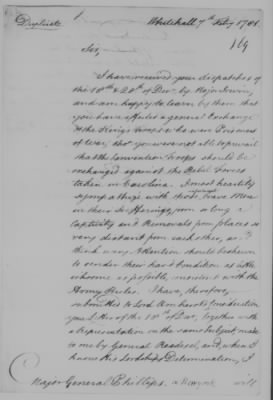 Duplicate
Whitehall 7th Feby 1781.
169
Sir,
I have received your dispatches of
the 18th & 20th of Decr. by Major
and am happy to learn by them that
you have effected a general Exchange
of the King's Troops who were Prisoners
of War, tho' you were not able to prevail
that the Convention Troops should be
exchanged against the Rebel Forces
taken in Carolina. I most heartily
sympathize with those brave Men
in their Sufferings from so long a
Captivity and Removals from places so
very distant from each other, and I
think every Attention should be shewn
to render their hard Condition as little
irksome as possible,
Army Rules. I have, therefore,
submitted to Lord Amherst's Consideration
your Letter of the 18th of Decr. together with
a Representation on the same Subject, made
to me by General Readesel, and when I
know His Lordship's Determination, I
Major General Phillips. New York
will